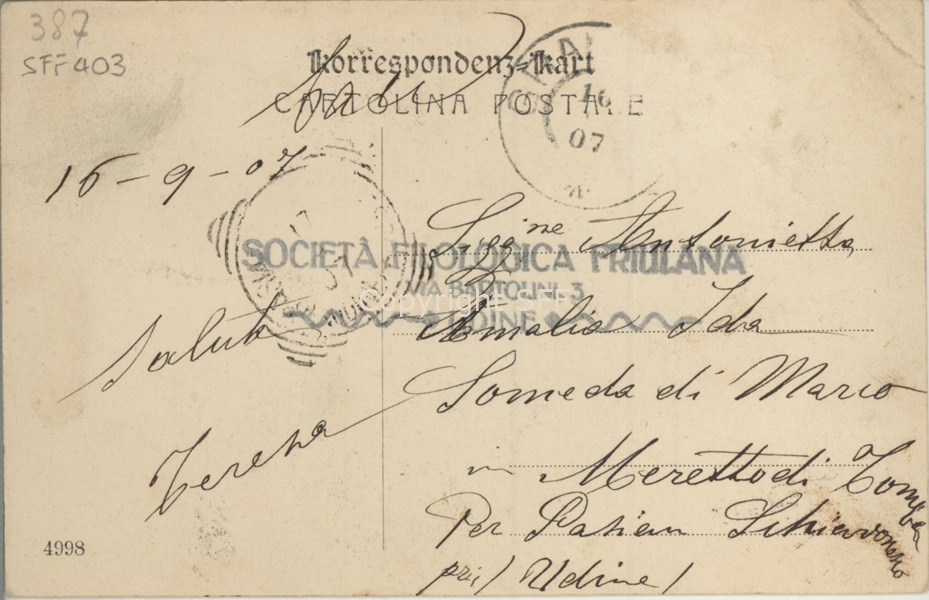 387
SFF 403
Korrespondenz-Kart
CARTOLINA POSTALE
16
07
16 - 9 - 07
Sigg.ne Antonietta
SOCIETÀ FILOLOGICA FRIULANA
VIA BARTOLINI, 3
UDINE
Copyright SFF
Amalia Ida
Saluti
Someda di Marco
Teresa
in Meretto di Tomba
Per Pasian Schiavonesco
4998
Udine